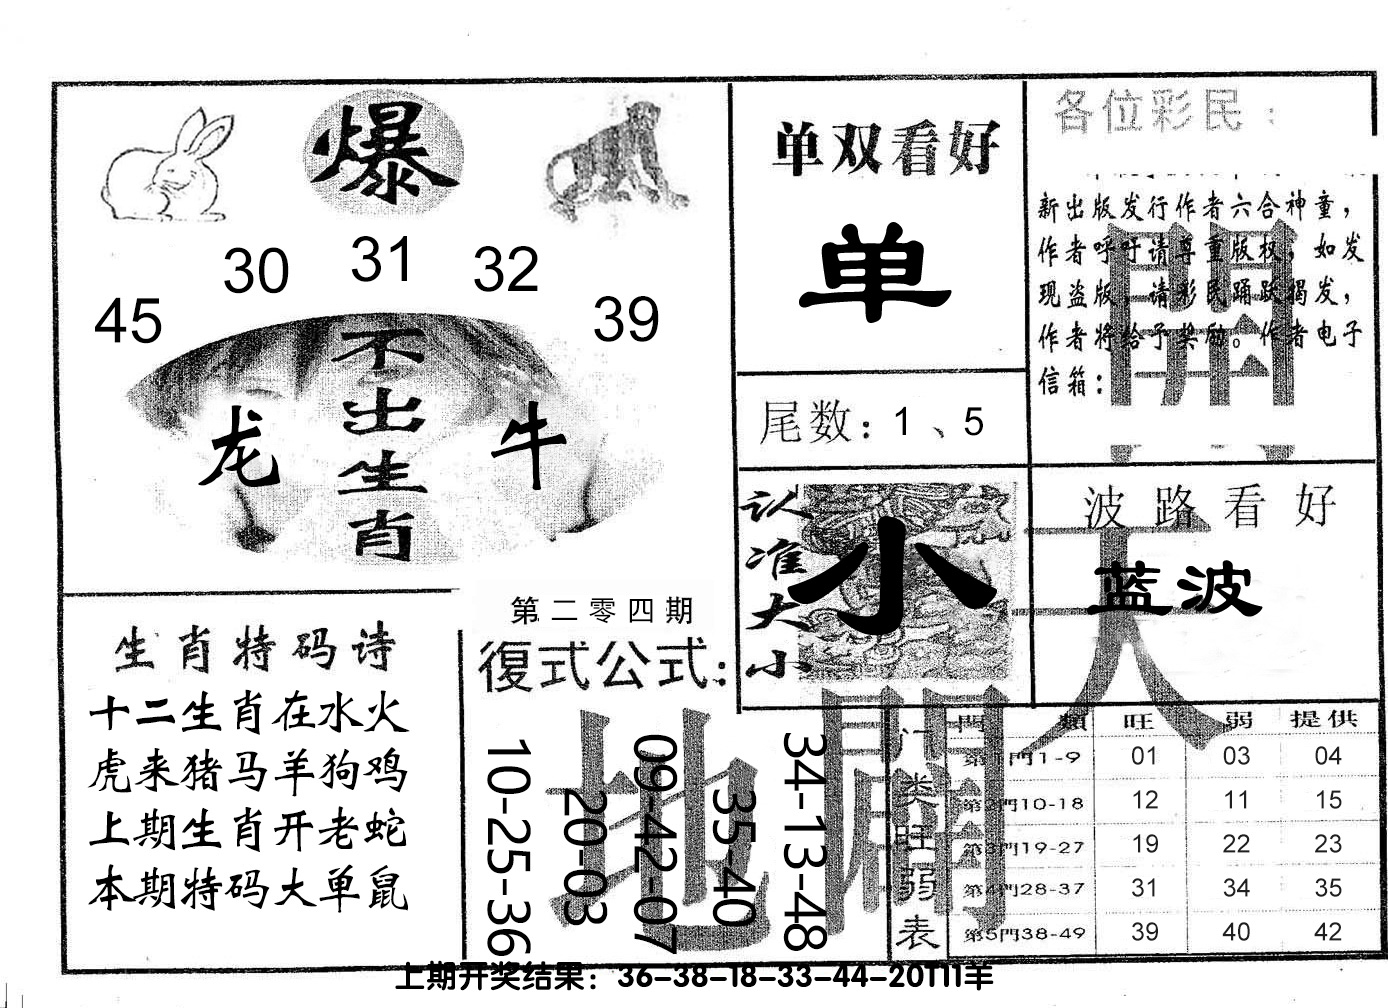 爆
30 31 32
45 39
不出生肖
龙 牛
单双看好
单
尾数：1、5
各位彩民：
新出版发行作者六合神童，
作者呼吁请尊重版权，如发
现盗版，请彩民踊跃揭发，
作者将给予奖励。作者电子
信箱：
開
认准大小
小
波路看好
蓝波
天
生肖特码诗
十二生肖在水火
虎来猪马羊狗鸡
上期生肖开老蛇
本期特码大单鼠
第二零四期
復式公式：
10-25-36
20-03
09-42-07
35-40
34-13-48
地
門类旺弱表
門 類 旺 弱 提供
第1門1-9 01 03 04
第2門10-18 12 11 15
第3門19-27 19 22 23
第4門28-37 31 34 35
第5門38-49 39 40 42
上期开奖结果：36-38-18-33-44-20T11羊